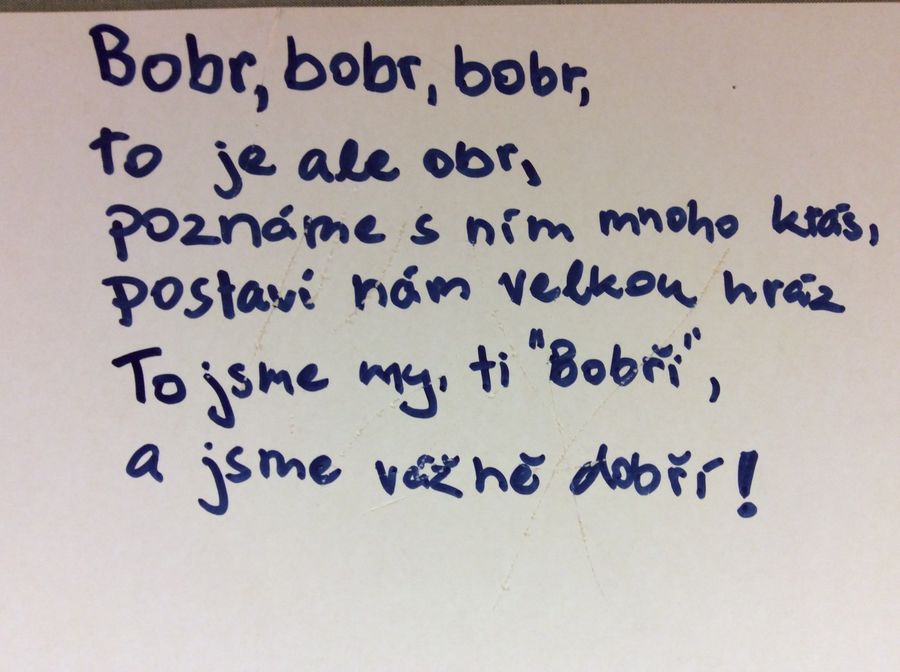 Bobr, bobr, bobr,
to je ale obr,
poznáme s ním mnoho krás,
postaví nám velkou hráz
To jsme my, ti "Bobři",
a jsme vážně dobří!